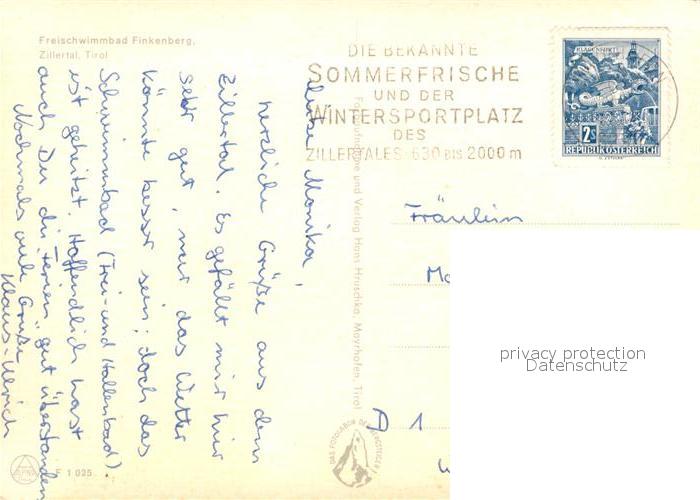 Freischwimmbad Finkenberg,
Zillertal, Tirol
Liebe Monika,
herzliche Grüße aus dem
Zillertal. Es gefällt mir hier
sehr gut, nur das Wetter
könnte besser sein; doch das
Schwimmbad (Frei- und Hallenbad)
ist geheizt. Hoffendlich hast
auch Du die "Ferien" gut überstanden
Nochmals viele Grüße
Klaus-Ulrich
F 1 025
Fotoaufnahme und Verlag Hans Hruschka, Mayrhofen, Tirol
DAS FOTOLABOR DER BERGSTEIGER
DIE BEKANNTE
SOMMERFRISCHE
UND DER
WINTERSPORTPLATZ
DES
ZILLERTALES 630 BIS 2000 m
KLAGENFURT
2S
REPUBLIK ÖSTERREICH
Fräulein
Mo
D 1
privacy protection
Datenschutz